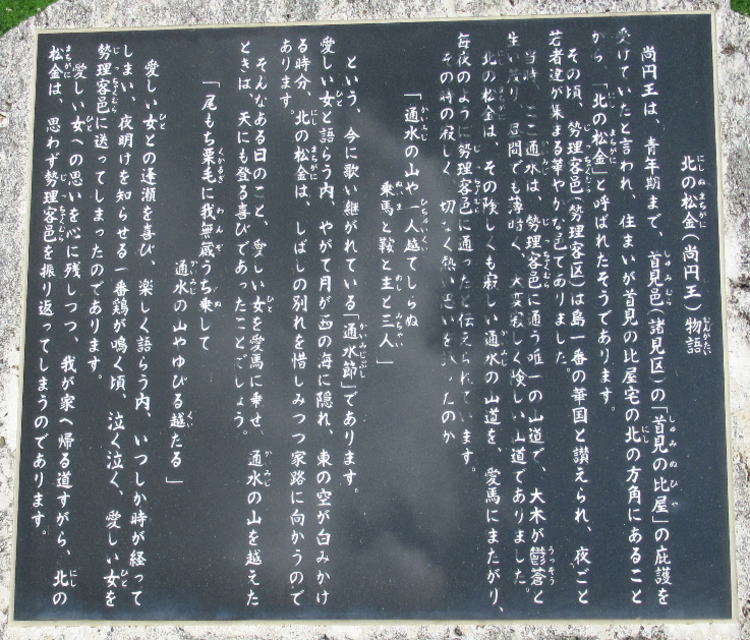 北の松金(尚円王)物語
尚円王は、青年期まで、首見邑(諸見区)の「首見の比屋」の庇護を
受けていたと言われ、住まいが首見の比屋宅の北の方角にあること
から、「北の松金」と呼ばれたそうであります。
その頃、勢理客邑(勢理客区)は島一番の華国と讃えられ、夜ごと
若者達が集まる華やかな邑でありました。
当時、ここ通水は、勢理客邑に通う唯一の山道で、大木が鬱蒼と
生い茂り、昼間でも薄暗く、大変寂しく険しい山道でありました。
北の松金は、その険しくも寂しい通水の山道を、愛馬にまたがり、
毎夜のように勢理客邑に通ったと伝えられています。
その時の寂しく、切なく熱い思いを
たのか
「通水の山や一人越てしらぬ
乗馬と鞍と主と三人」
という、今に歌い継がれている「通水節」であります。
愛しい女と語らう内、やがて月が西の海に隠れ、東の空が白みかけ
る時分、北の松金は、しばしの別れを惜しみつつ家路に向かうので
あります。
そんなある日のこと、愛しい女を愛馬に乗せ、通水の山を越えた
ときは、天にも登る喜びであったことでしょう。
「尾もち栗毛に我無蔵うち乗して
通水の山やゆびる越たる」
愛しい女との逢瀬を喜び、楽しく語らう内、いつしか時が経って
しまい、夜明けを知らせる一番鶏が鳴く頃、泣く泣く、愛しい女を
勢理客邑に送ってしまったのであります。
愛しい女への思いを心に残しつつ、我が家へ帰る道すがら、北の
松金は、思わず勢理客邑を振り返ってしまうのであります。